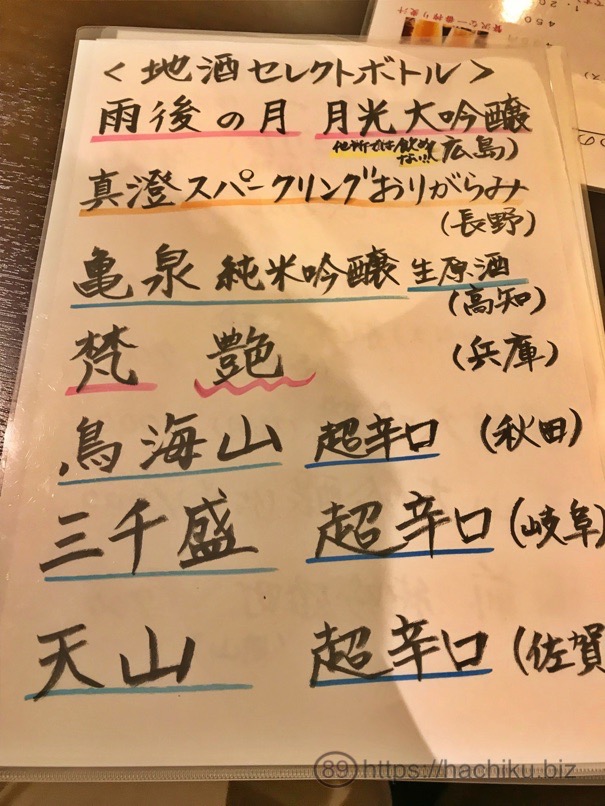 <地酒セレクトボトル>
雨後の月 月光大吟醸
他所では飲めない!! (広島)
真澄スパークリングおりがらみ
(長野)
亀泉 純米吟醸 生原酒
(高知)
梵 艶 (兵庫)
鳥海山 超辛口 (秋田)
三千盛 超辛口 (岐阜)
天山 超辛口 (佐賀
89 https://hachiku.biz